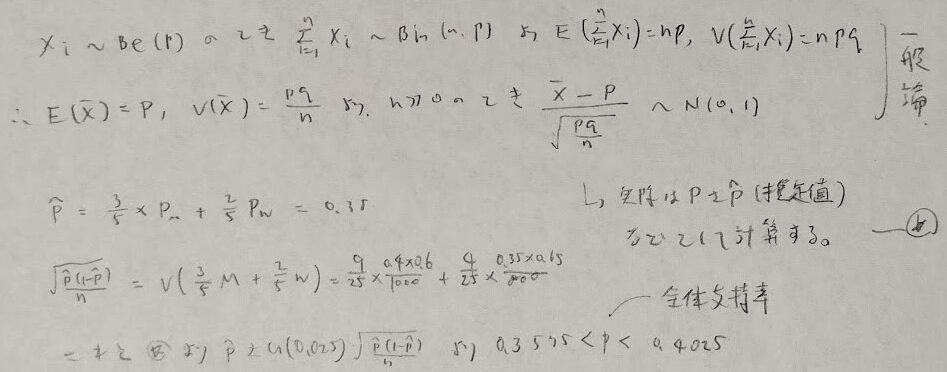 Xi ~ Be(p) のとき \sum_{i=1}^{n} Xi ~ Bin(n, p) より E(\sum_{i=1}^{n} Xi) = np, V(\sum_{i=1}^{n} Xi) = npq
一般論
∴ E(X̄) = p, V(X̄) = \frac{pq}{n} より, n≫0 のとき \frac{X̄ - p}{\sqrt{\frac{pq}{n}}} ~ N(0, 1)
p̂ = \frac{3}{5} × P_m + \frac{2}{5} P_w = 0.38
↳ 実際は p を p̂ (推定値)
などとして計算する。
\sqrt{\frac{p̂(1-p̂)}{n}} = V(\frac{3}{5} M + \frac{2}{5} W) = \frac{9}{25} × \frac{0.4×0.6}{1000} + \frac{4}{25} × \frac{0.35×0.65}{800}
全体支持率
p̂ ± u(0.025) \sqrt{\frac{p̂(1-p̂)}{n}} より 0.3575 < p < 0.4025